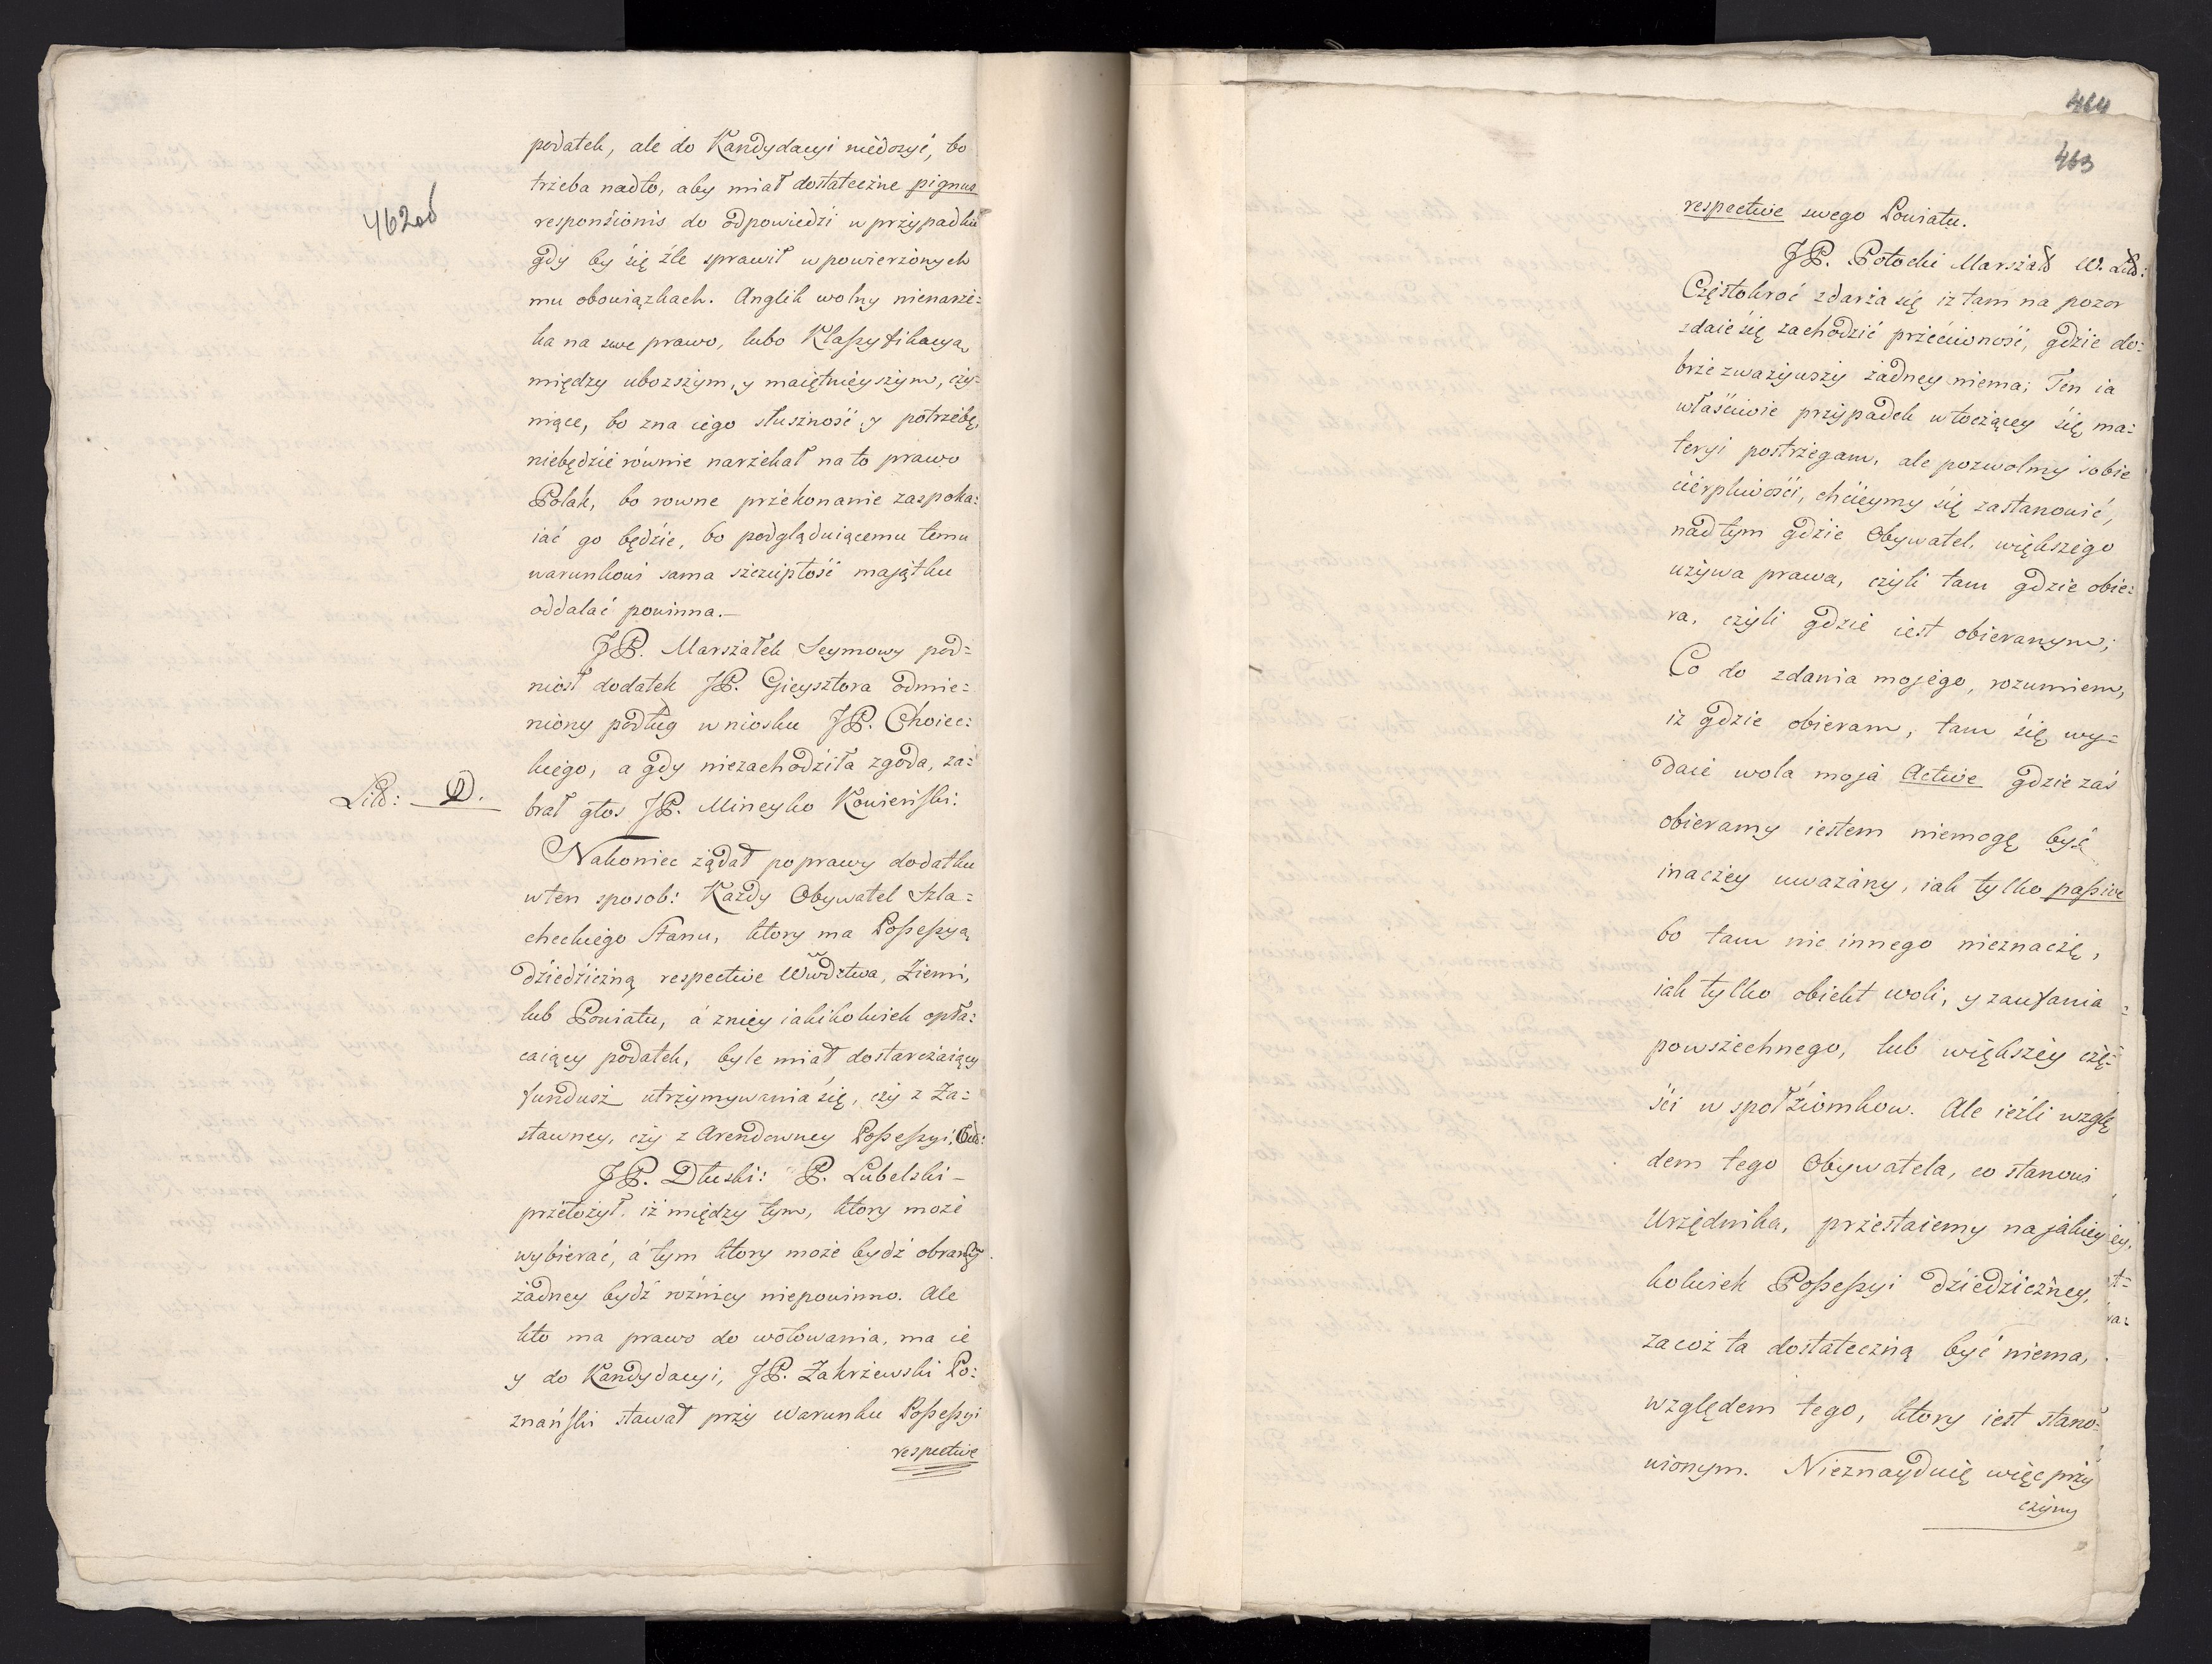 462 od
podatek, ale do Kandydacyi niedosyć, bo
trzeba nadto, aby miał dostateczne pignus
responsionis do odpowiedzi w przypadku
gdy by się źle sprawił w powierzonych
mu obowiązkach. Anglik wolny nienarze:
ka na swe prawo, lubo Klaßyfikacyą
między ubozszym, y maiętnieyszym, czy:
niące, bo zna iego słuszność y potrzebę,
niebędzie równie narzekał na to prawo
Polak, bo rowne przekonanie zaspoka:
iać go będzie, bo podglądaiącemu temu
warunkowi sama szczupłość majątku
oddalać powinna.—
JP. Marszałek Seymowy pod=
niosł dodatek JP. Gieysztora odmie:
niony podług wniosku JP. Choiec:
kiego, a gdy niezachodziła zgoda, za:
Litt: D.
brał głos JP. Mineyko Kowieński:
Nakoniec żądał poprawy dodatku
w ten sposob: Kazdy Obywatel Szla=
checkiego Stanu, ktory ma Poßeßyą
dziedziczną respective Wwdztwa, Ziemi,
lub Powiatu, á zniey iakikolwiek opła:
caiący podatek, byle miał dostarczaiący
fundusz utrzymywania się, czy z Za=
stawney, czy z Arendowney Poßeßyi;
JP. Dłuski: P. Lubelski —
przełożył, iż między tym, ktory może
wybierać, á tym ktory może bydź obrany
żadney bydź rożnicy niepowinno. Ale
kto ma prawo do wotowania, ma ie
y do Kandydacyi, JP. Zakrzewski Po:
znański stawał przy Warunku Poßeßyi
respective
464
463
respective swego Powiatu.
JP. Potocki Marszałł W. Litt:
Częstokroć zdarza się iz tam na pozor
zdaie się zachodzić przeciwność, gdzie do:
brze zwazywszy żadney niema; Ten ia
właściwie przypadek w toczącey się ma:
teryi postrzegam, ale pozwolmy sobie
cierpliwości, chcieymy się zastanowić,
nad tym gdzie Obywatel, większego
używa prawa, czyli tam gdzie obie:
ra, czyli gdzie iest obieranym;
Co do zdania mojego, rozumiem,
iż gdzie obieram, tam się wy=
daie wola moja Active gdzie zaś
obieramy iestem niemogę być
inaczey uważany, iak tylko paßive
bo tam nic innego nieznaczę,
iak tylko obiekt woli, y zaufania
powszechnego, lub większey czę=
ści wspołziomkow. Ale ieżli wzglę
dem tego Obywatela, co stanowi
Urzędnika, przestaiemy na jakiey
kolwiek Poßeßyi dziedziczney,
zacoż ta dostateczną być niema,
względem tego, ktory iest stano=
wionym. Nieznayduię więc przy
czyny